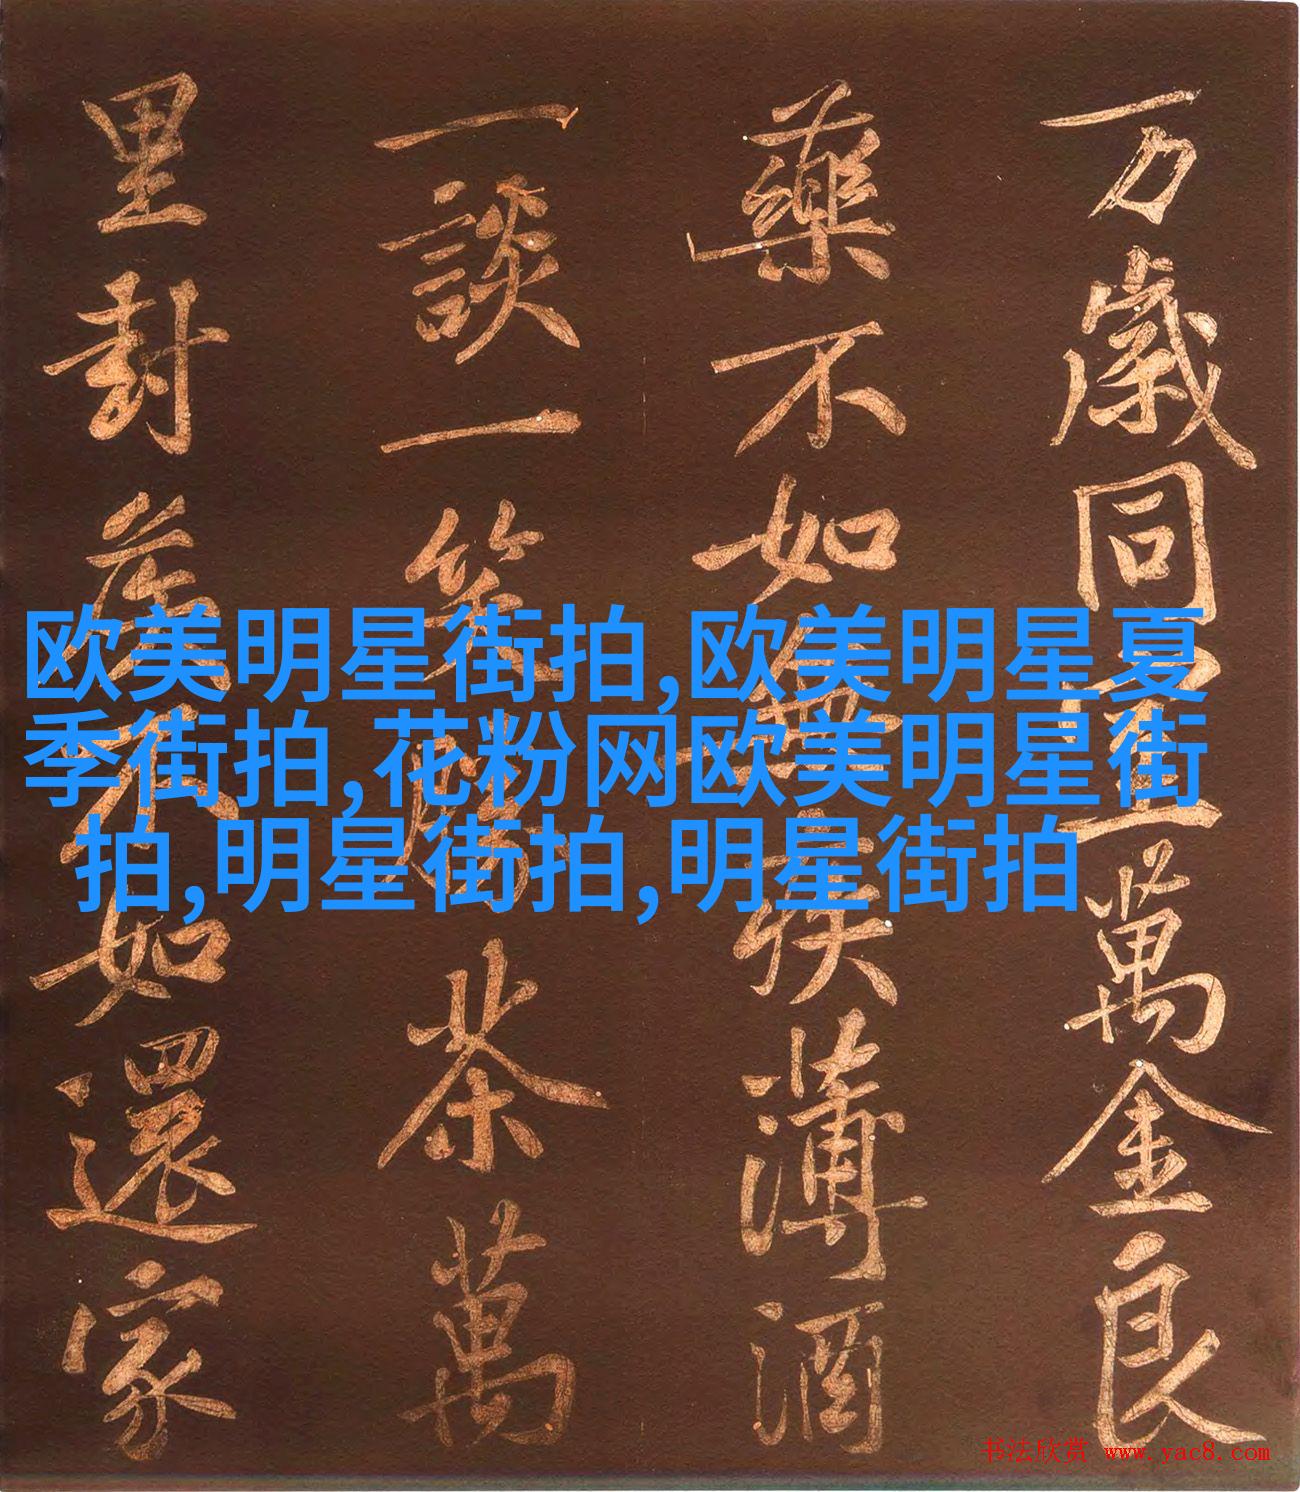 万歲同丘萬金良
藥不如無疾薄酒
一談一笑勝茶萬
里封侯不如還家
欧美明星街拍,欧美明星夏
季街拍,花粉网欧美明星街
拍,明星街拍,明星街拍
书法欣赏 www.yac8.com